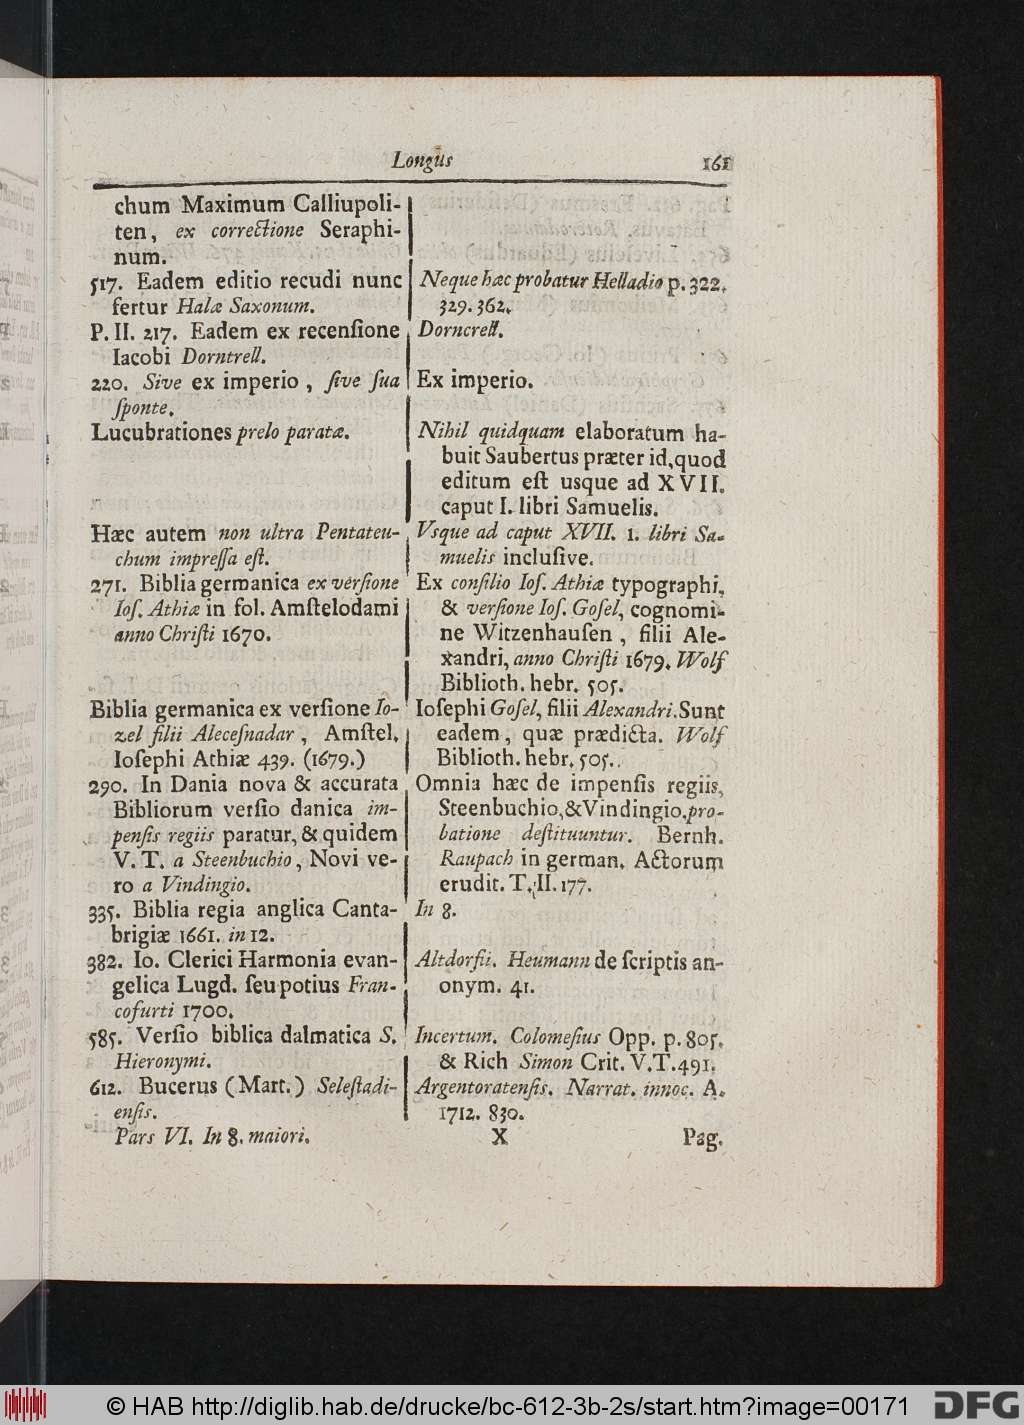 Longus 161
chum Maximum Calliupoli-
ten, ex correctione Seraphi-
num.
517. Eadem editio recudi nunc
fertur Halæ Saxonum.
P. II. 217. Eadem ex recenſione
Iacobi Dorntrell.
220. Sive ex imperio, ſive ſua
ſponte.
Lucubrationes prelo paratæ.
Hæc autem non ultra Pentateu-
chum impreſſa eſt.
271. Biblia germanica ex verſione
Ioſ. Athiæ in fol. Amſtelodami
anno Chriſti 1670.
Biblia germanica ex verſione Io-
zel filii Aleceſnadar, Amſtel.
Ioſephi Athiæ 439. (1679.)
290. In Dania nova & accurata
Bibliorum verſio danica im-
penſis regiis paratur, & quidem
V. T. a Steenbuchio, Novi ve-
ro a Vindingio.
335. Biblia regia anglica Canta-
brigiæ 1661. in 12.
382. Io. Clerici Harmonia evan-
gelica Lugd. ſeu potius Fran-
cofurti 1700.
585. Verſio biblica dalmatica S.
Hieronymi.
612. Bucerus (Mart.) Seleſtadi-
enſis.
Neque hæc probatur Helladio p. 322.
329. 362.
Dorncrell.
Ex imperio.
Nihil quidquam elaboratum ha-
buit Saubertus præter id, quod
editum eſt usque ad XVII.
caput I. libri Samuelis.
Vsque ad caput XVII. 1. libri Sa-
muelis incluſive.
Ex conſilio Ioſ. Athiæ typographi,
& verſione Ioſ. Goſel, cognomi-
ne Witzenhauſen, filii Ale-
xandri, anno Chriſti 1679. Wolf
Biblioth. hebr. 505.
Ioſephi Goſel, filii Alexandri. Sunt
eadem, quæ prædicta. Wolf
Biblioth. hebr. 505.
Omnia hæc de impenſis regiis,
Steenbuchio, & Vindingio, pro-
batione deſtituuntur. Bernh.
Raupach in german. Actorum
erudit. T. II. 177.
In 8.
Altdorfii. Heumann de ſcriptis an-
onym. 41.
Incertum. Colomeſius Opp. p. 805.
& Rich Simon Crit. V. T. 491.
Argentoratenſis. Narrat. innoc. A.
1712. 830.
Pars VI. In 8. maiori. X Pag.
© HAB http://diglib.hab.de/drucke/bc-612-3b-2s/start.htm?image=00171 DFG